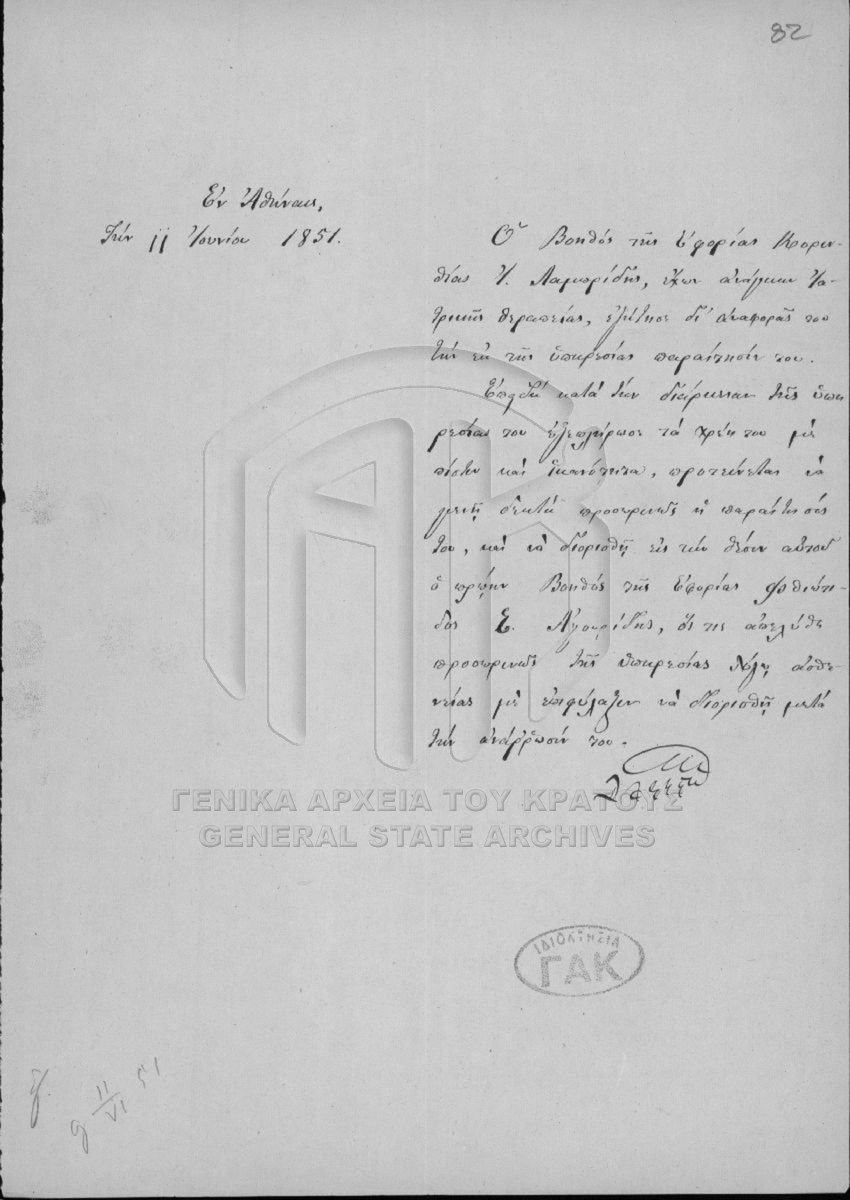 82
Ἐν Ἀθήναις,
Τὴν 11 Ἰουνίου 1851.
Ὁ Βοηθὸς τῆς Ἐφορίας Κοριν-
θίας Ἰ. Λαμπρίδης, ἔχων ἀνάγκην ἰα-
τρικῆς θεραπείας, ἐζήτησε δι' ἀναφορᾶς του
τὴν ἐκ τῆς ὑπηρεσίας παραίτησίν του.
Ἐπειδὴ κατὰ τὴν διάρκειαν τῆς ὑπη
ρεσίας του ἐξεπλήρωσε τὰ χρέη του μὲ
πίστιν καὶ ἱκανότητα, προτείνεται νὰ
γενῇ δεκτὴ προσωρινῶς ἡ παραίτησίς
του, καὶ νὰ διορισθῇ εἰς τὴν θέσιν αὐτοῦ
ὁ πρώην Βοηθὸς τῆς Ἐφορίας Φθιώτι-
δος Ε. Ἀγουρίδης, ὅς τις ἀπελύθη
προσωρινῶς τῆς ὑπηρεσίας λόγῳ ἀσθε-
νείας μὲ ἐπιφύλαξιν νὰ διορισθῇ μετὰ
τὴν ἀνάῤῥωσίν του.
ΓΕΝΙΚΑ ΑΡΧΕΙΑ ΤΟΥ ΚΡΑΤΟΥΣ
GENERAL STATE ARCHIVES
ΙΔΙΟΚΤΗΣΙΑ
ΓΑΚ
11/VI 51